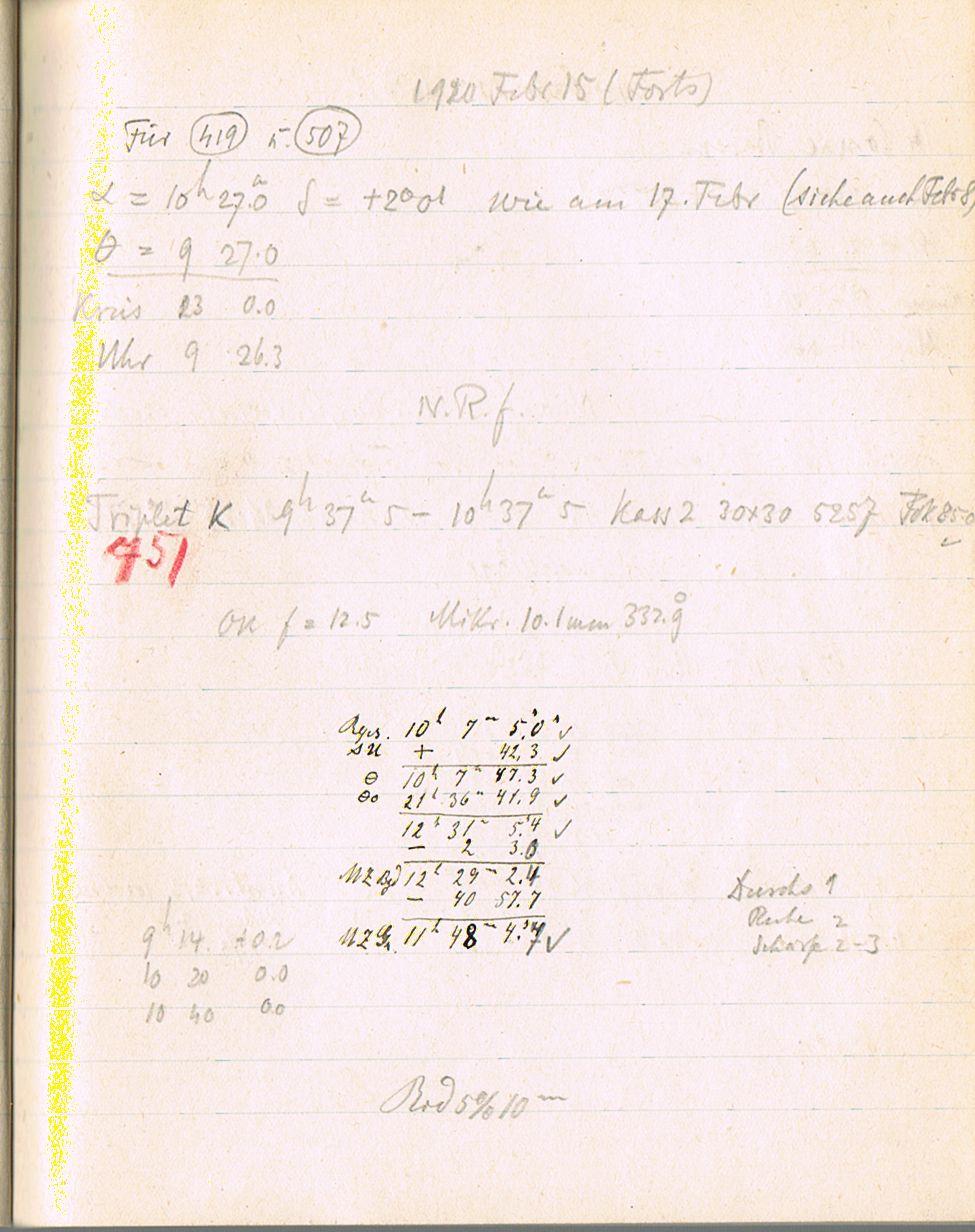 1920 Febr 15 (Forts)
Für 419 u. 507
α = 10h 27m.0 δ = +20°01 wie am 17. Febr (siehe auch Febr 8)
θ = 9 27.0
Kreis 23 0.0
Uhr 9 26.3
N.R.f.
Triplet K 9h 37m 5 – 10h 37m 5 Kass 2 30x30 5257 Fok 85.0
451
f = 12.5 Mikr. 10.1mm 332.9
10h 7m 5.s0 ✓
ΔU + 42,3 ✓
θ 10h 7m 47.3 ✓
θo 21h 36m 41.9 ✓
12h 31m 5.s4 ✓
– 2 3.0
MZ Bgd 12h 29m 2.4
– 40 57.7
MZ Gr. 11h 48m 4.s7 ✓
Durchs 1
Ruhe 2
Schärfe 2–3
9h 14. +0.2
10 20 0.0
10 40 0.0
Rod 5% 10m